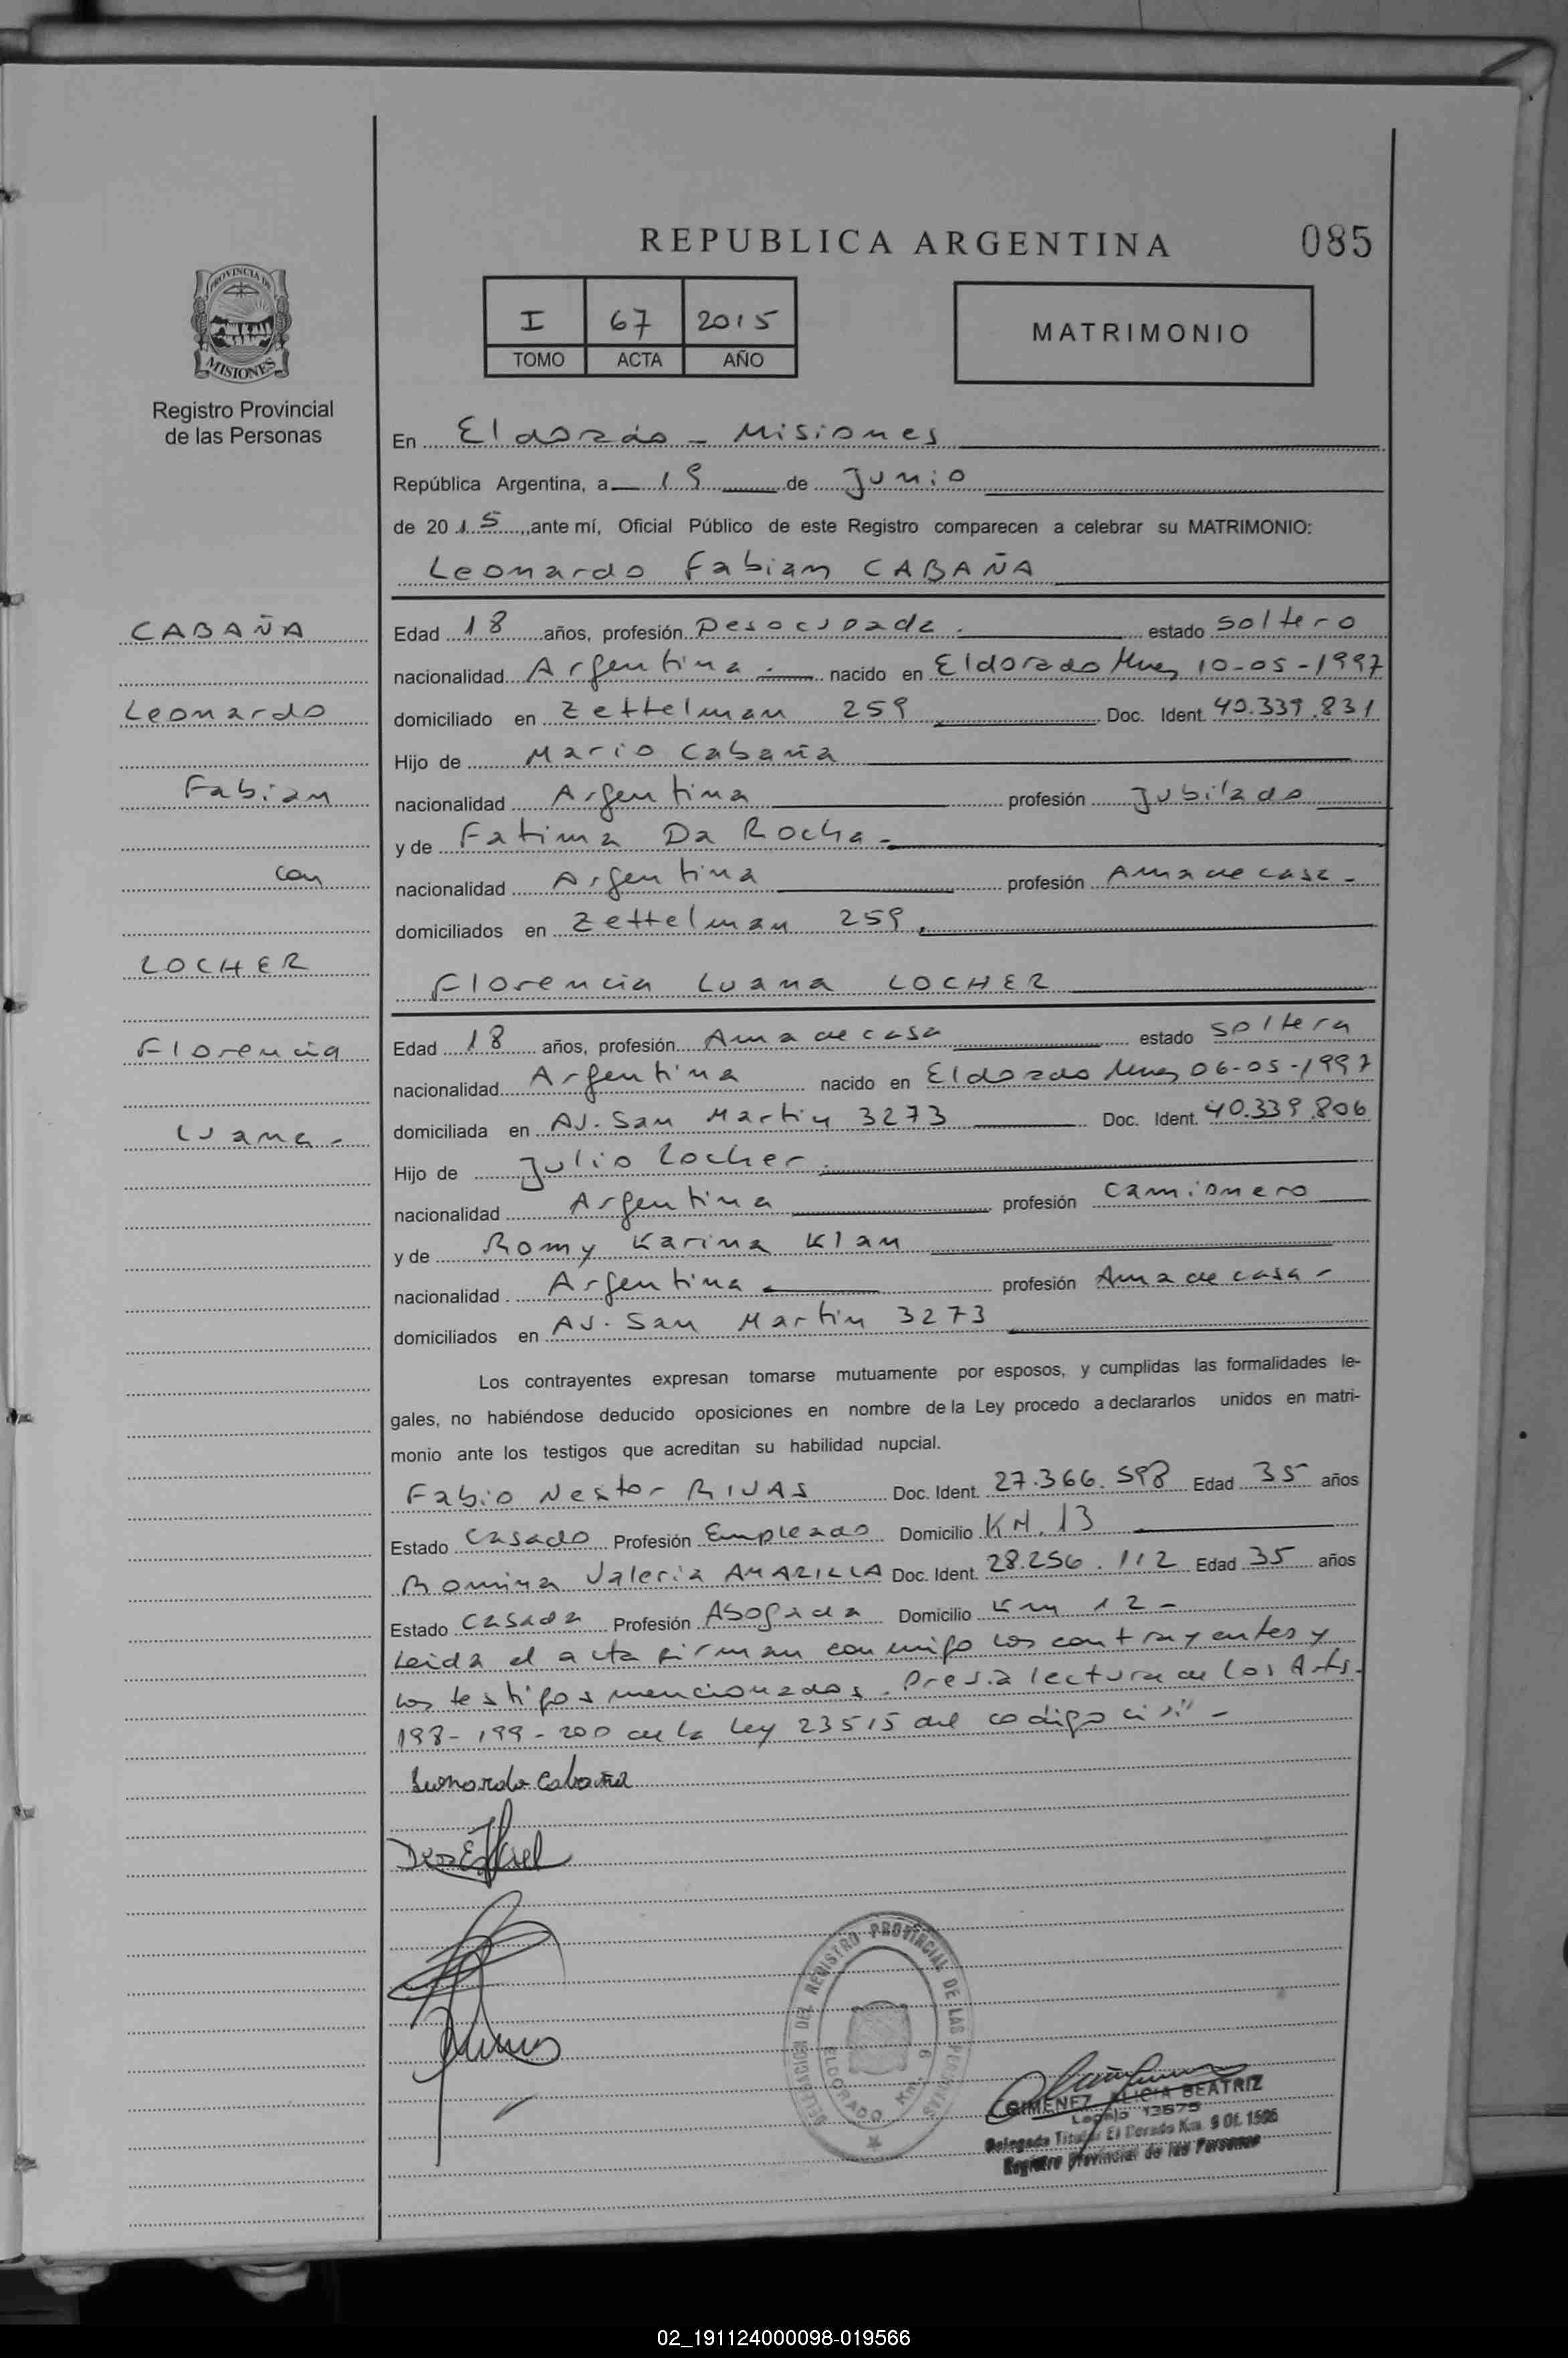 REPUBLICA ARGENTINA
085
PROVINCIA DE
MISIONES
Registro Provincial
de las Personas
I 67 2015
TOMO ACTA AÑO
MATRIMONIO
En Eldorado - Misiones
República Argentina, a 19 de Junio
de 2015, ante mí, Oficial Público de este Registro comparecen a celebrar su MATRIMONIO:
Leonardo Fabian CABAÑA
CABAÑA
Leonardo
Fabian
con
LOCHER
Florencia
Luana -
Edad 18 años, profesión Desocupado. estado soltero
nacionalidad Argentina. nacido en Eldorado Mnes 10-05-1997
domiciliado en Zettelman 259 Doc. Ident. 40.339.831
Hijo de Mario Cabaña
nacionalidad Argentina profesión Jubilado
y de Fatima Da Rocha -
nacionalidad Argentina profesión Ama de casa -
domiciliados en Zettelman 259.
Florencia Luana LOCHER
Edad 18 años, profesión Ama de casa estado soltera
nacionalidad Argentina nacido en Eldorado Mnes 06-05-1997
domiciliada en Av. San Martin 3273 Doc. Ident. 40.339.806
Hijo de Julio Locher.
nacionalidad Argentina profesión Camionero
y de Romy Karina Klan
nacionalidad Argentina profesión Ama de casa -
domiciliados en Av. San Martin 3273
Los contrayentes expresan tomarse mutuamente por esposos, y cumplidas las formalidades le-
gales, no habiéndose deducido oposiciones en nombre de la Ley procedo a declararlos unidos en matri-
monio ante los testigos que acreditan su habilidad nupcial.
Fabio Nestor RIVAS Doc. Ident. 27.366.598 Edad 35 años
Estado Casado Profesión Empleado Domicilio KM. 13
Romina Valeria AMARILLA Doc. Ident. 28.256.112 Edad 35 años
Estado Casada Profesión Abogada Domicilio Km 12 -
Leida el acta firman conmigo los contrayentes y
los testigos mencionados. Previa lectura de los Arts.
198-199-200 de la Ley 23515 del codigo civil -
Leonardo Cabaña
DELEGACION DEL REGISTRO PROVINCIAL DE LAS PERSONAS
ELDORADO Km. 9
GIMENEZ ALICIA BEATRIZ
Legajo 13675
Delegada Titular El Dorado Km. 9 Of. 1596
Registro Provincial de las Personas
02_191124000098-019566